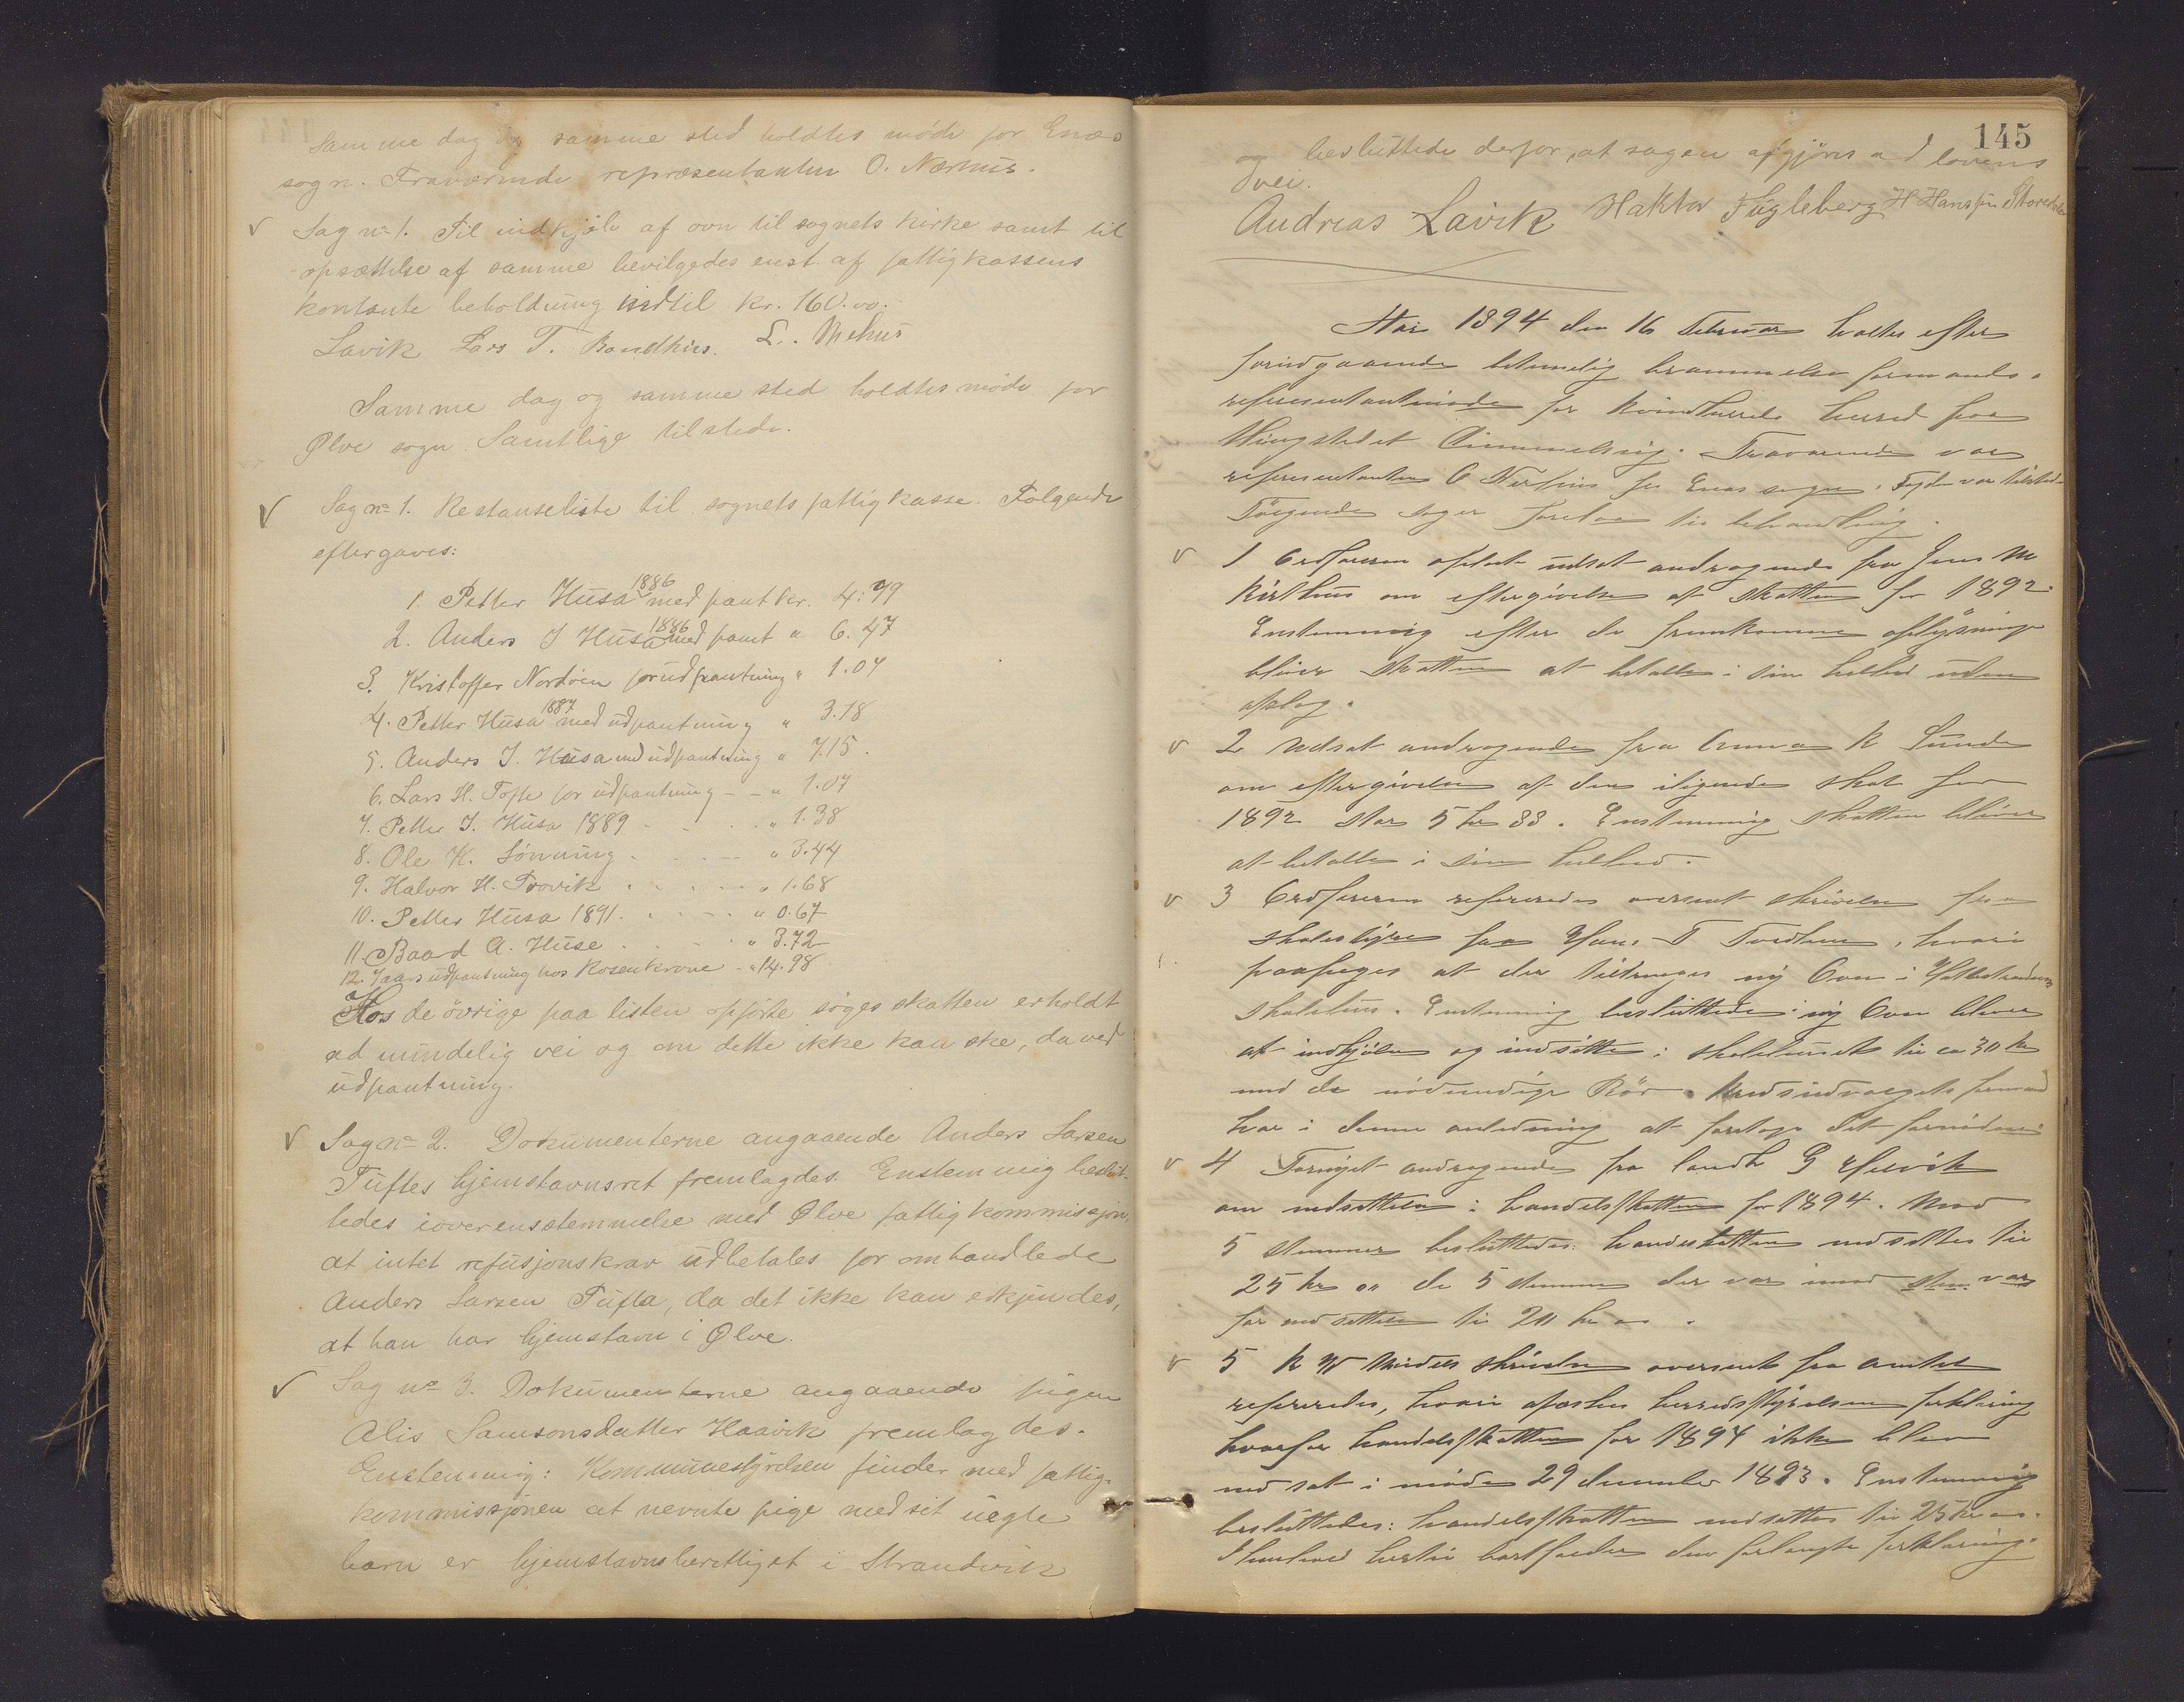 Samme dag og samme sted holdtes møde for Enæs
sogn. Fraværende repræsentanten O. Nærhus.
Sag no 1. Til indkjøb af ovn til sognets kirke samt til
opsættelse af samme bevilgedes enst. af fattigkassens
kontante beholdning indtil kr. 160.00.
Lavik Lars T. L. Mehus
Samme dag og samme sted holdtes møde for
Ølve sogn. Samtlige tilstede.
Sag no 1. Restanseliste til sognets fattigkasse. Følgende
eftergaves:
1. Petter Husa 1886 med pant kr. 4.79
2. Anders J Husa 1886 med pant " 6.47
3. Kristoffer Nordøen for udpantning " 1.07
4. Petter Husa 1887 med udpantning " 3.18
5. Anders J. Husa med udpantning " 7.15.
6. Lars H. Tofte for udpantning - - " 1.07
7. Petter J. Husa 1889 - - - " 1.38
8. Ole K. Sønning - - - " 3.44
9. Halvor H. Trovik . . . - " 1.68
10. Petter Husa 1891. . - - " 0.67
11. Baard A. Huse . . . " 3.72
12. 7 aars udpantning hos Rosenkrone - " 14.98
Hos de øvrige paa listen opførte søges skatten erholdt
ad mindelig vei og om dette ikke kan ske, da ved
udpantning.
Sag no 2. Dokumenterne angaaende Anders Larsen
Tuftes hjemstavnsret fremlagdes. Enstemmig beslut-
tedes i overensstemmelse med Ølve fattigkommissjon,
at intet refusjonskrav udbetales for omhandlede
Anders Larsen Tufta, da det ikke kan erkjendes,
at han har hjemstavn i Ølve.
Sag no 3. Dokumenterne angaaende pigen
Alis Samsonsdatter Haavik fremlagdes.
Enstemmig: Kommunestyrelsen finder med fattig-
kommissjonen at nevnte pige med sit uegte
barn er hjemstavnsberettiget i Strandvik
145
og besluttede derfor, at sagen afgjøres ad lovens
vei.
Andreas Lavik Haktor Fugleberg H Hanssøn
Aar 1894 den 16 Februar holtes efter
forudgaaende betimelig berammelse formands &
representantmøde for Kvindherreds herred paa
thingstedet. Fraværende var
representanten O Nerhus for Enæs sogn. Foged var tilstede
Følgende sager forelaa til behandling.
1 Ordføreren oplæste udsat andragende fra Jens M
Kirkhus om eftergivelse af skatten for 1892.
Enstemmig efter de fremkomne oplysninger
bliver skatten at betale i sin helhed uden
afslag.
2 Udsat andragende fra Anna K Sunde
om eftergivelse af den ilignede skat for
1892 stor 5 kr 33. Enstemmig skatten bliver
at betale i sin helhed.
3 Ordføreren refererede oversent skrivelse fra
skolestyret fra Hans T Tvedten, hvori
paapeges at der tiltrænges ny Ovn i
skolehus. Enstemmig besluttedes: ny Ovn bliver
at indkjøbe og indsætte i skolehuset til ca 30 kr
med de nødvendige Rør. Kredsudvalgets formand
har i denne anledning at foretage det fornødne
4 Fornyet andragende fra landh G
om nedsættelse i handelsskatten for 1894. Mod
5 stemmer besluttedes: handelsskatten nedsættes til
25 kr oo de 5 stemmer der var imod var
for nedsættelse til 20 kr oo.
5 skrivelse oversent fra amtet
refereredes, hvori herredsstyrelsens forklaring
hvorfor handelsskatten for 1894 ikke blev
nedsat i møde 29 december 1893. Enstemmig
besluttedes: handelsskatten nedsættes til 25 kr oo.
I henhold hertil bortfalder den forlangte forklaring.